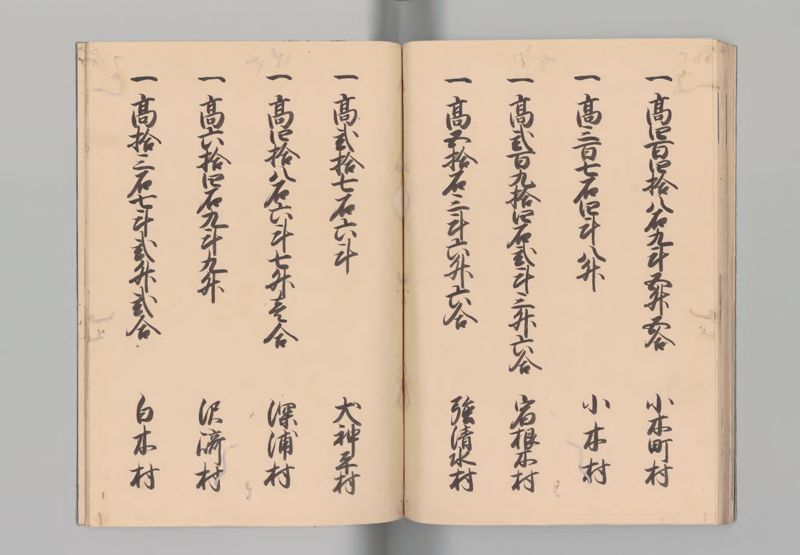 一 高四百四拾八石九斗五升五合 小木町村
一 高三百七石四斗八升 小木村
一 高弐百九拾四石弐斗三升六合 宿根木村
一 高五拾石三斗六升六合 強清水村
一 高弐拾七石六斗 犬神平村
一 高四拾八石六斗七升壱合 深浦村
一 高六拾四石九斗九升 沢崎村
一 高拾三石七斗弐升弐合 白木村